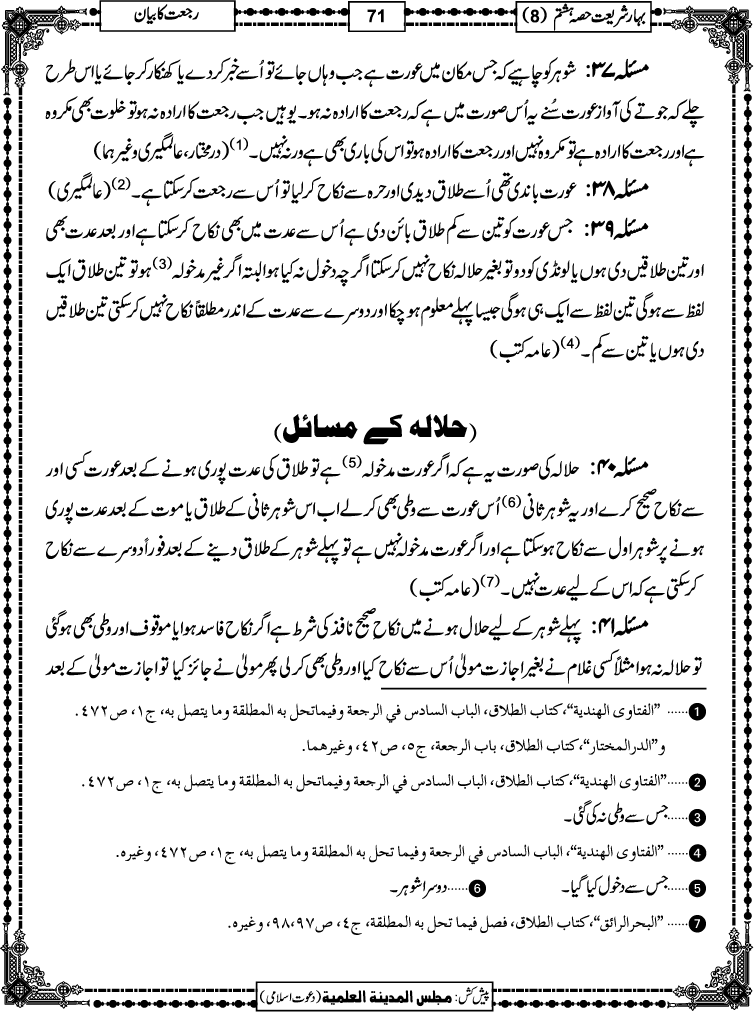 بہارِ شریعت حصہ ہشتم (8)
71
رجعت کا بیان
مسئلہ ۳۷: شوہر کو چاہیے کہ جس مکان میں عورت ہے جب وہاں جائے تو اُسے خبر کردے یا کھنکار کر جائے یا اس طرح
چلے کہ جوتے کی آواز عورت سُنے یہ اُس صورت میں ہے کہ رجعت کا ارادہ نہ ہو۔ یوہیں جب رجعت کا ارادہ نہ ہو تو خلوت بھی مکروہ
ہے اور رجعت کا ارادہ ہے تو مکروہ نہیں اور رجعت کا ارادہ ہو تو اس کی باری بھی ہے ورنہ نہیں۔(1) (درمختار، عالمگیری وغیرہما)
مسئلہ ۳۸: عورت باندی تھی اُسے طلاق دیدی اور حرہ سے نکاح کرلیا تو اُس سے رجعت کرسکتا ہے۔(2) (عالمگیری)
مسئلہ ۳۹: جس عورت کو تین سے کم طلاق بائن دی ہے اُس سے عدت میں بھی نکاح کرسکتا ہے اور بعد عدت بھی
اور تین طلاقیں دی ہوں یا لونڈی کو دو تو بغیر حلالہ نکاح نہیں کرسکتا اگرچہ دخول نہ کیا ہو البتہ اگر غیر مدخولہ(3) ہو تو تین طلاق ایک
لفظ سے ہوگی تین لفظ سے ایک ہی ہوگی جیسا پہلے معلوم ہوچکا اور دوسرے سے عدت کے اندر مطلقاً نکاح نہیں کرسکتی تین طلاقیں
دی ہوں یا تین سے کم۔(4) (عامہ کتب)
(حلالہ کے مسائل)
مسئلہ ۴۰: حلالہ کی صورت یہ ہے کہ اگر عورت مدخولہ(5) ہے تو طلاق کی عدت پوری ہونے کے بعد عورت کسی اور
سے نکاح صحیح کرے اور یہ شوہر ثانی(6) اُس عورت سے وطی بھی کرلے اب اس شوہر ثانی کے طلاق یا موت کے بعد عدت پوری
ہونے پر شوہر اول سے نکاح ہوسکتا ہے اور اگر عورت مدخولہ نہیں ہے تو پہلے شوہر کے طلاق دینے کے بعد فوراً دوسرے سے نکاح
کرسکتی ہے کہ اس کے لیے عدت نہیں۔(7) (عامہ کتب)
مسئلہ ۴۱: پہلے شوہر کے لیے حلال ہونے میں نکاح صحیح نافذ کی شرط ہے اگر نکاح فاسد ہوا یا موقوف اور وطی بھی ہوگئی
تو حلالہ نہ ہوا مثلاً کسی غلام نے بغیر اجازت مولیٰ اُس سے نکاح کیا اور وطی بھی کرلی پھر مولیٰ نے جائز کیا تو اجازت مولیٰ کے بعد
1 ...... "الفتاوی الھندیة"، کتاب الطلاق، الباب السادس في الرجعة وفیماتحل به المطلقة وما یتصل به، ج۱، ص٤٧٢.
و"الدرالمختار"، کتاب الطلاق، باب الرجعة، ج٥، ص٤٢، وغیرهما.
2 ......"الفتاوی الھندیة"، کتاب الطلاق، الباب السادس في الرجعة وفیماتحل به المطلقة وما یتصل به، ج۱، ص٤٧٢.
3 ......جس سے وطی نہ کی گئی۔
4 ...... "الفتاوی الھندیة"، الباب السادس في الرجعة وفیما تحل به المطلقة وما یتصل به، ج۱، ص٤٧٢، وغیره.
5 ......جس سے دخول کیا گیا۔ 6 ......دوسرا شوہر۔
7 ...... "البحرالرائق"، کتاب الطلاق، فصل فیما تحل به المطلقة، ج٤، ص٩٧،٩٨، وغیره.
پیش کش: مجلس المدینة العلمیة (دعوت اسلامی)